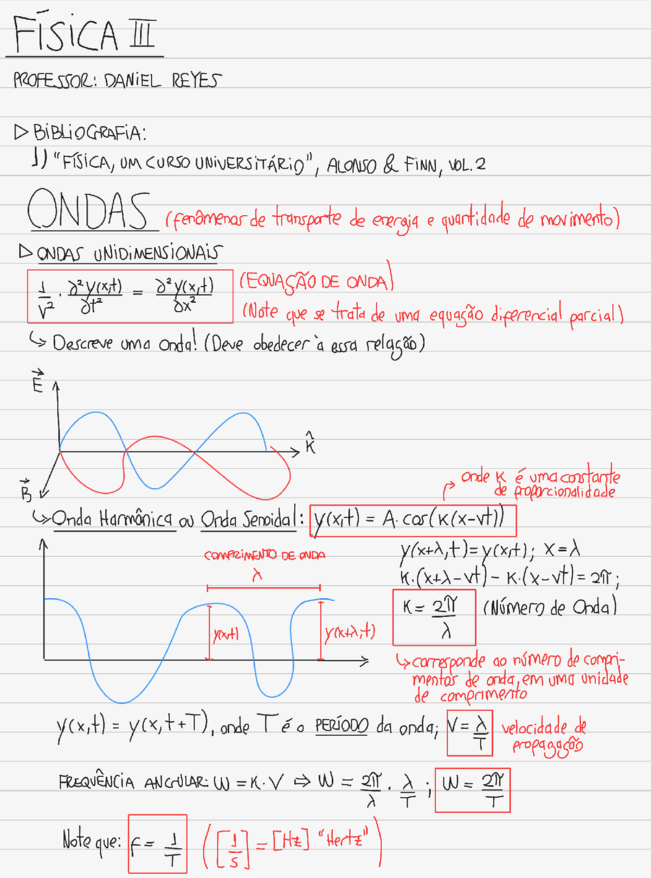 FÍSICA III
PROFESSOR: DANIEL REYES
▷ BIBLIOGRAFIA:
1) "FÍSICA, UM CURSO UNIVERSITÁRIO", ALONSO & FINN, VOL. 2
ONDAS (fenômenos de transporte de energia e quantidade de movimento)
▷ ONDAS UNIDIMENSIONAIS
1/V² · ∂²y(x,t)/∂t² = ∂²y(x,t)/∂x² (EQUAÇÃO DE ONDA)
(Note que se trata de uma equação diferencial parcial)
↳ Descreve uma onda! (Deve obedecer à essa relação)
E⃗
K̂
B⃗
onde K é uma constante
de proporcionalidade
↳ Onda Harmônica ou Onda Senoidal: y(x,t) = A·cos(K(x-vt))
COMPRIMENTO DE ONDA
λ
y(x,t)
y(x+λ,t)
y(x+λ,t) = y(x,t); X = λ
K·(x+λ-vt) - K·(x-vt) = 2π;
K = 2π/λ (Número de Onda)
↳ corresponde ao número de compri-
mentos de onda, em uma unidade
de comprimento
y(x,t) = y(x,t+T), onde T é o PERÍODO da onda; V = λ/T velocidade de
propagação
FREQUÊNCIA ANGULAR: W = K·V ⇒ W = 2π/λ · λ/T ; W = 2π/T
Note que: f = 1/T ([1/s] = [Hz] "Hertz")